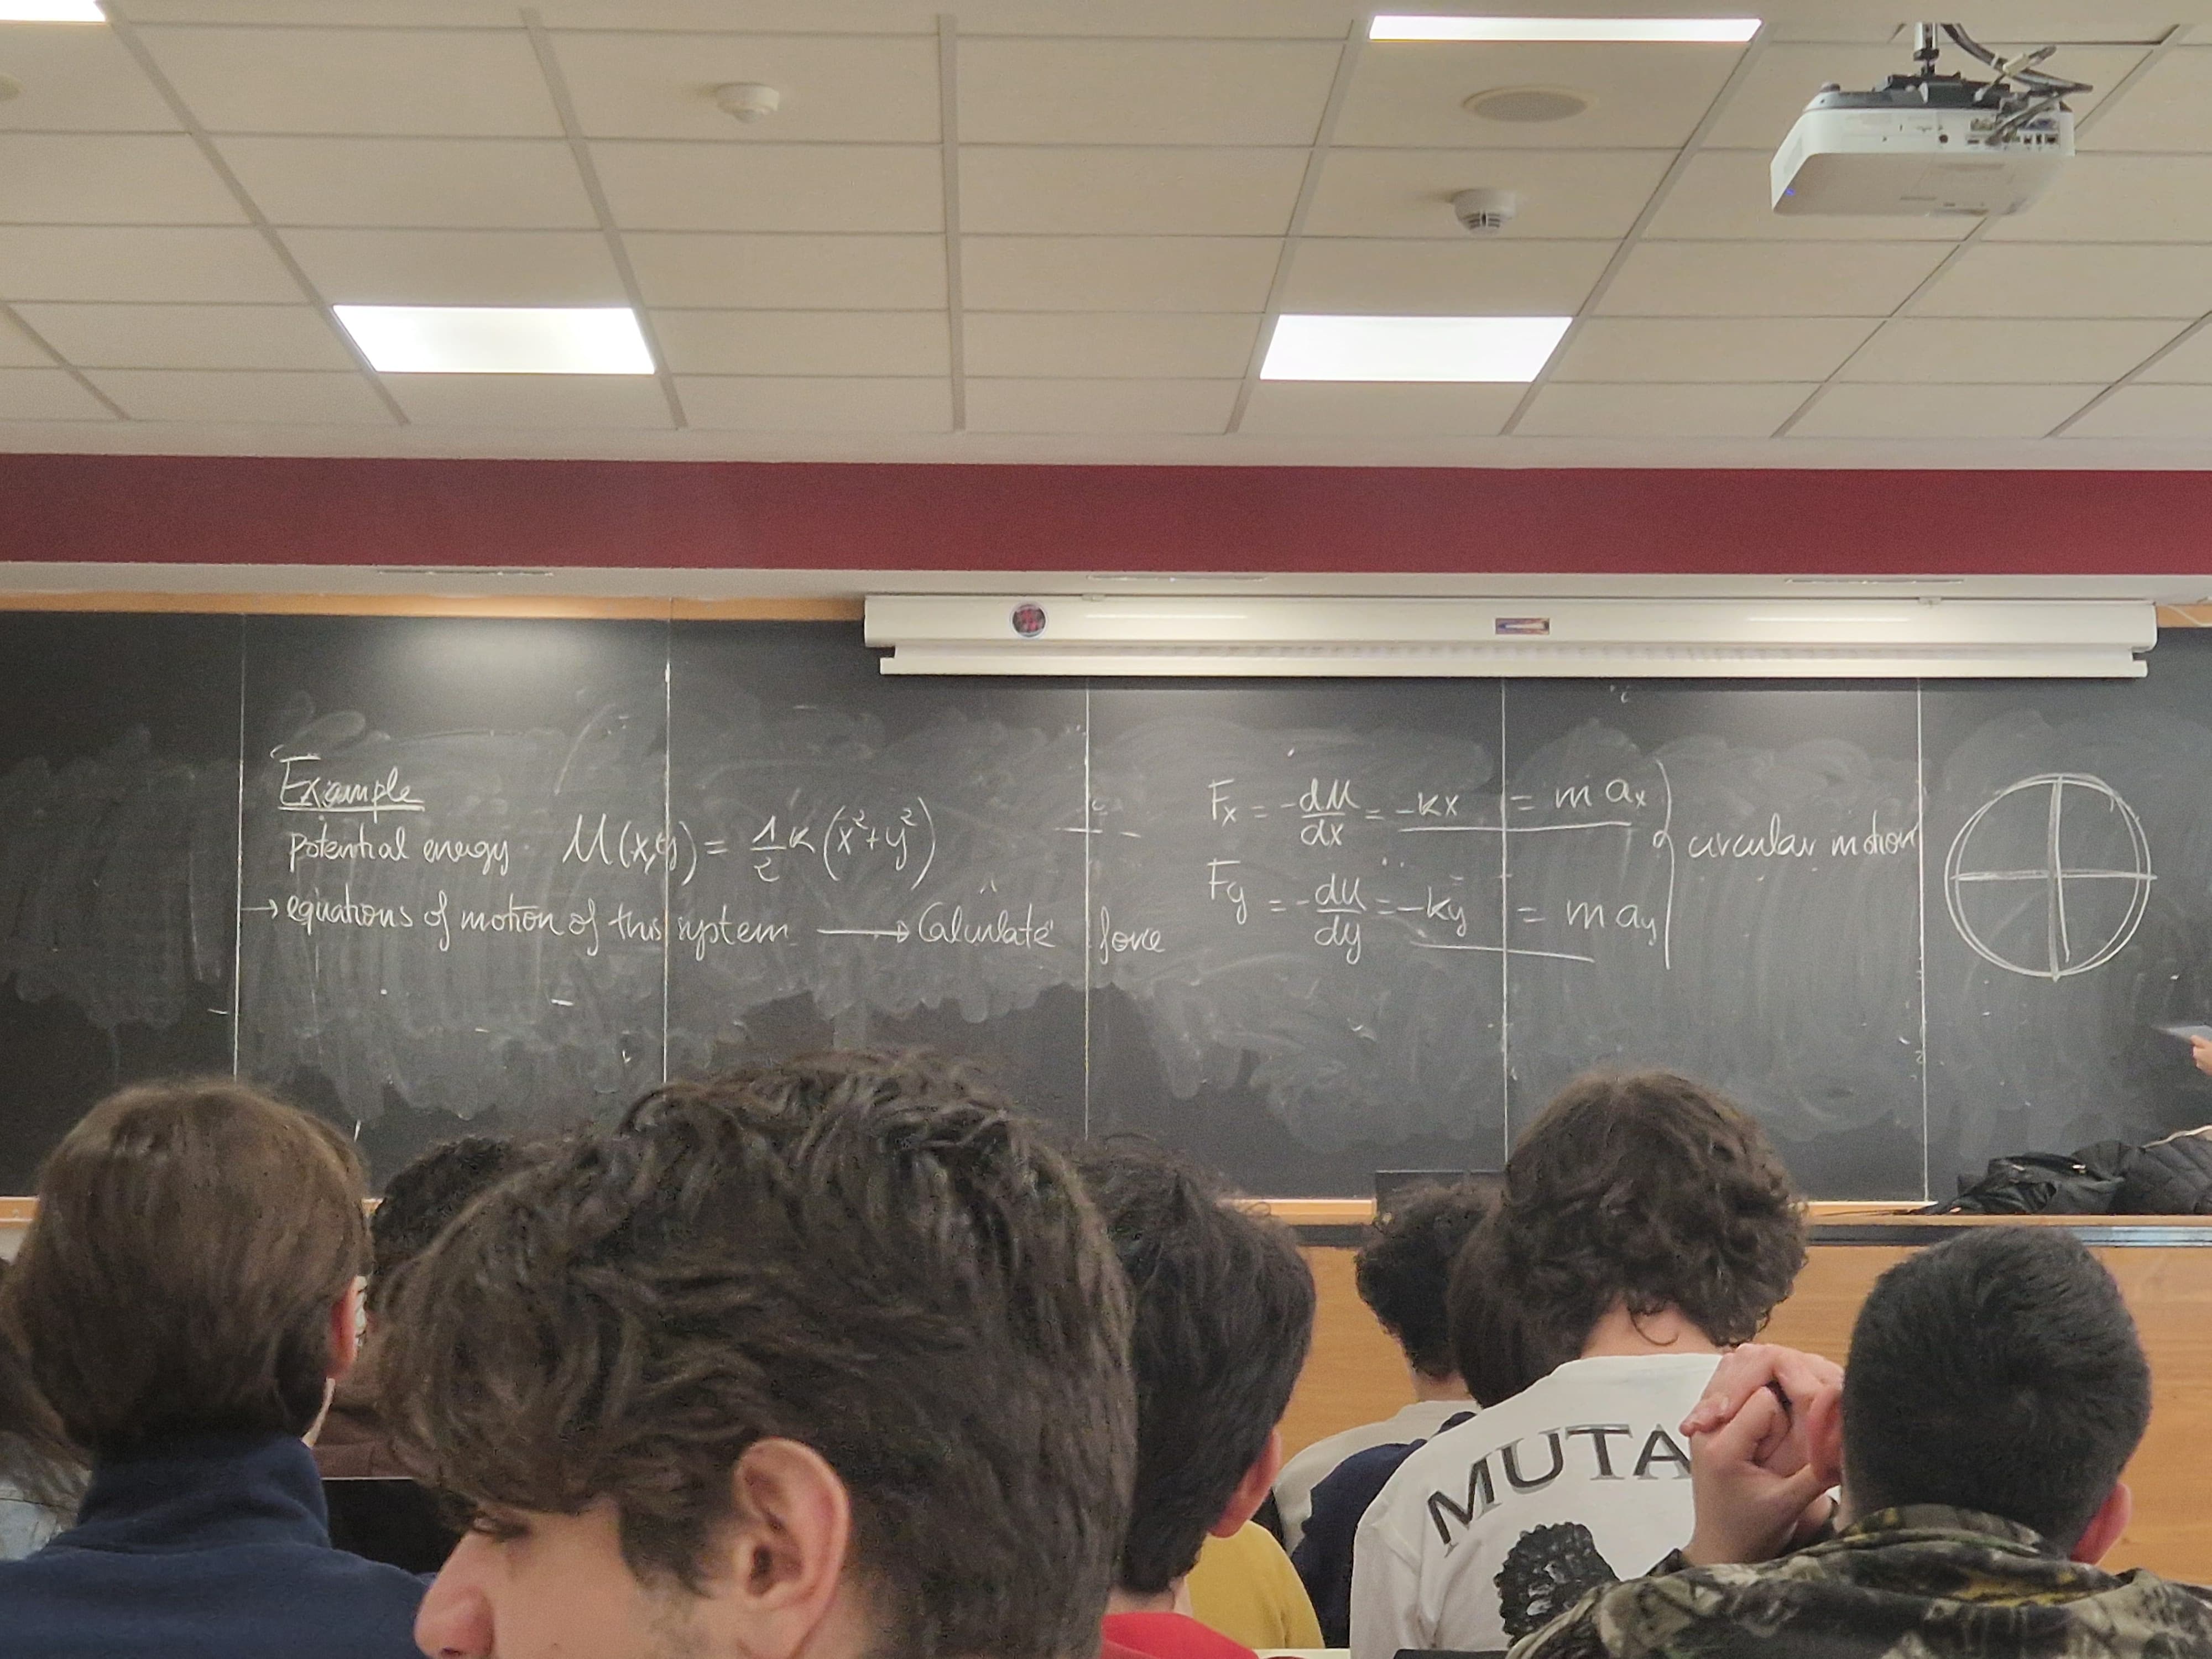 Example
potential energy. U(x,y) = 1/2 k (x² + y²)
→ equations of motion of this system → Calculate force
Fx = -dU/dx = -kx = m ax
Fy = -dU/dy = -ky = m ay
circular motion
MUTA